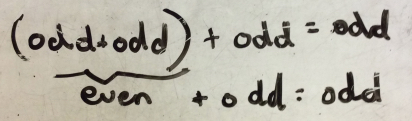 (odd+odd) + odd = odd
even + odd = odd